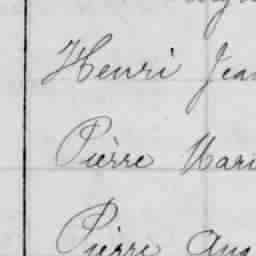 Henri Jean
Pièrre Mari
Pierre Aug